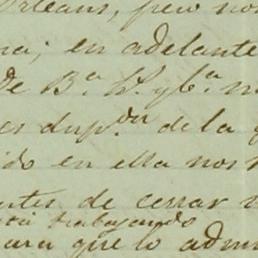 Orleans, pero no
na; en adelante
de B.ª L.ª y b.ª
es dup.on de la
ido en ella nos
ntes de cerrar
sta trabajando
para que lo adm